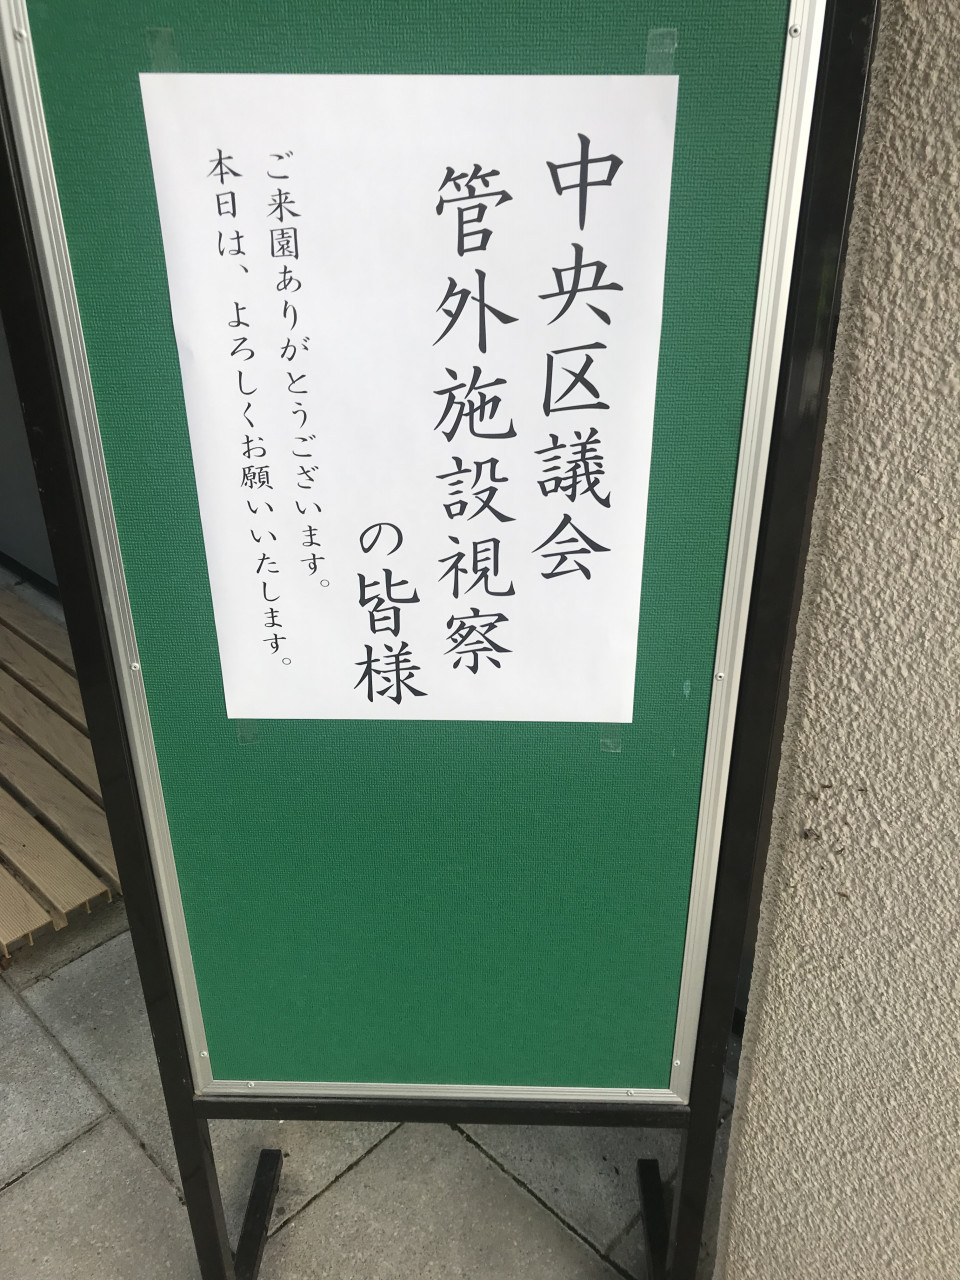 中央区議会
管外施設視察
の皆様
ご来園ありがとうございます。
本日は、よろしくお願いいたします。